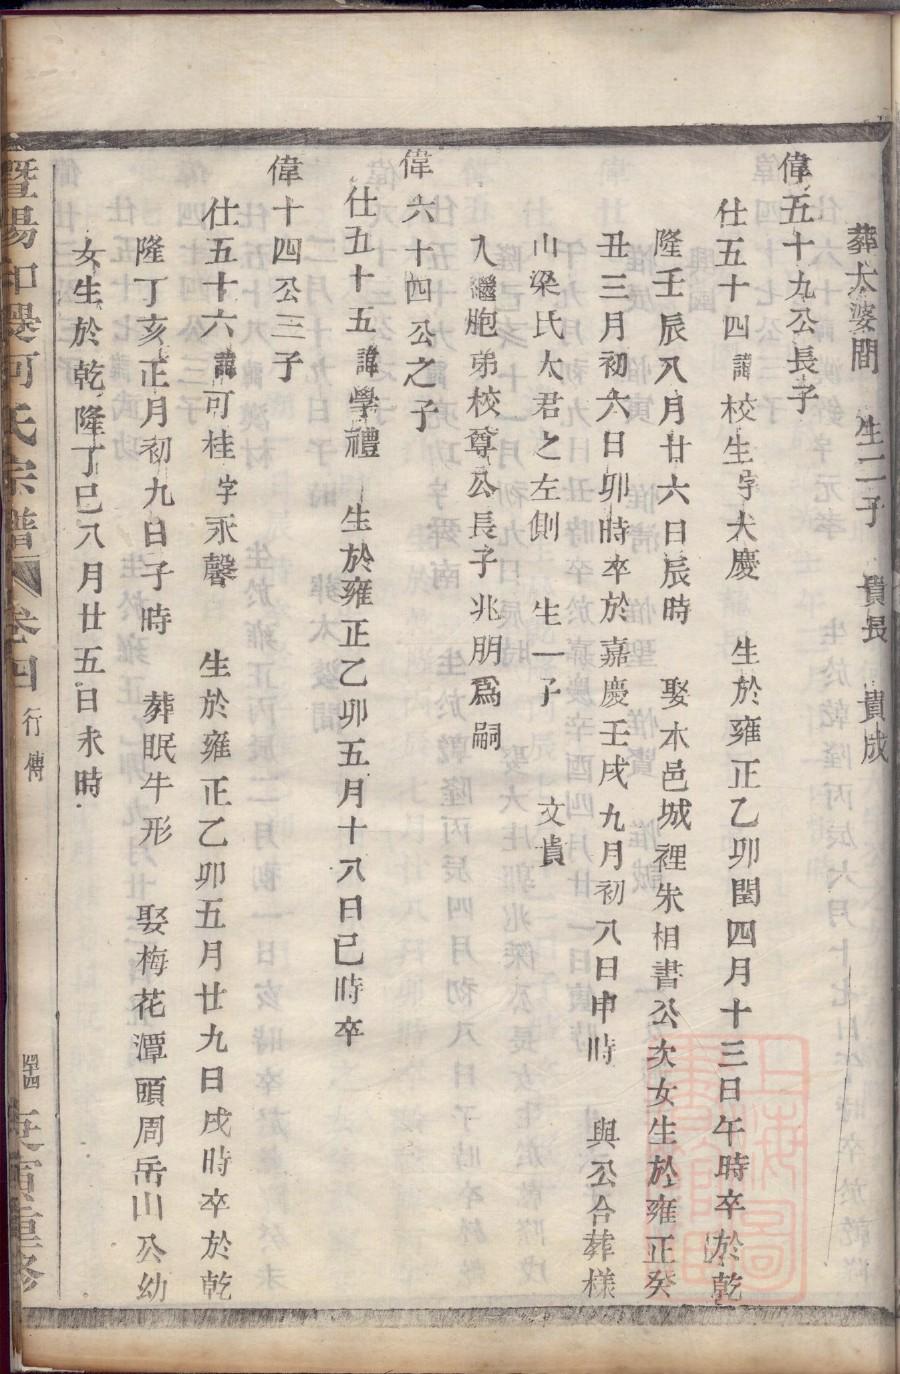 葬大婆間　生二子　貴長　貴成
偉五十九公長子
仕五十四諱校生字大慶　生於雍正乙卯閏四月十三日午時卒於乾
隆壬辰八月廿六日辰時　娶本邑城裡朱相書公次女生於雍正癸
丑三月初六日卯時卒於嘉慶壬戌九月初八日申時　與公合葬樣
山梁氏太君之左側　生一子　文貴
入繼胞弟校尊公長子兆朋爲嗣
偉六十四公之子
仕五十五諱學禮　生於雍正乙卯五月十八日巳時卒
偉十四公三子
仕五十六諱可桂字永馨　生於雍正乙卯五月廿九日戌時卒於乾
隆丁亥正月初九日子時　葬眠牛形　娶梅花潭頭周岳山公幼
女生於乾隆丁巳八月廿五日未時
暨陽和㬅何氏宗譜　卷四　行傳